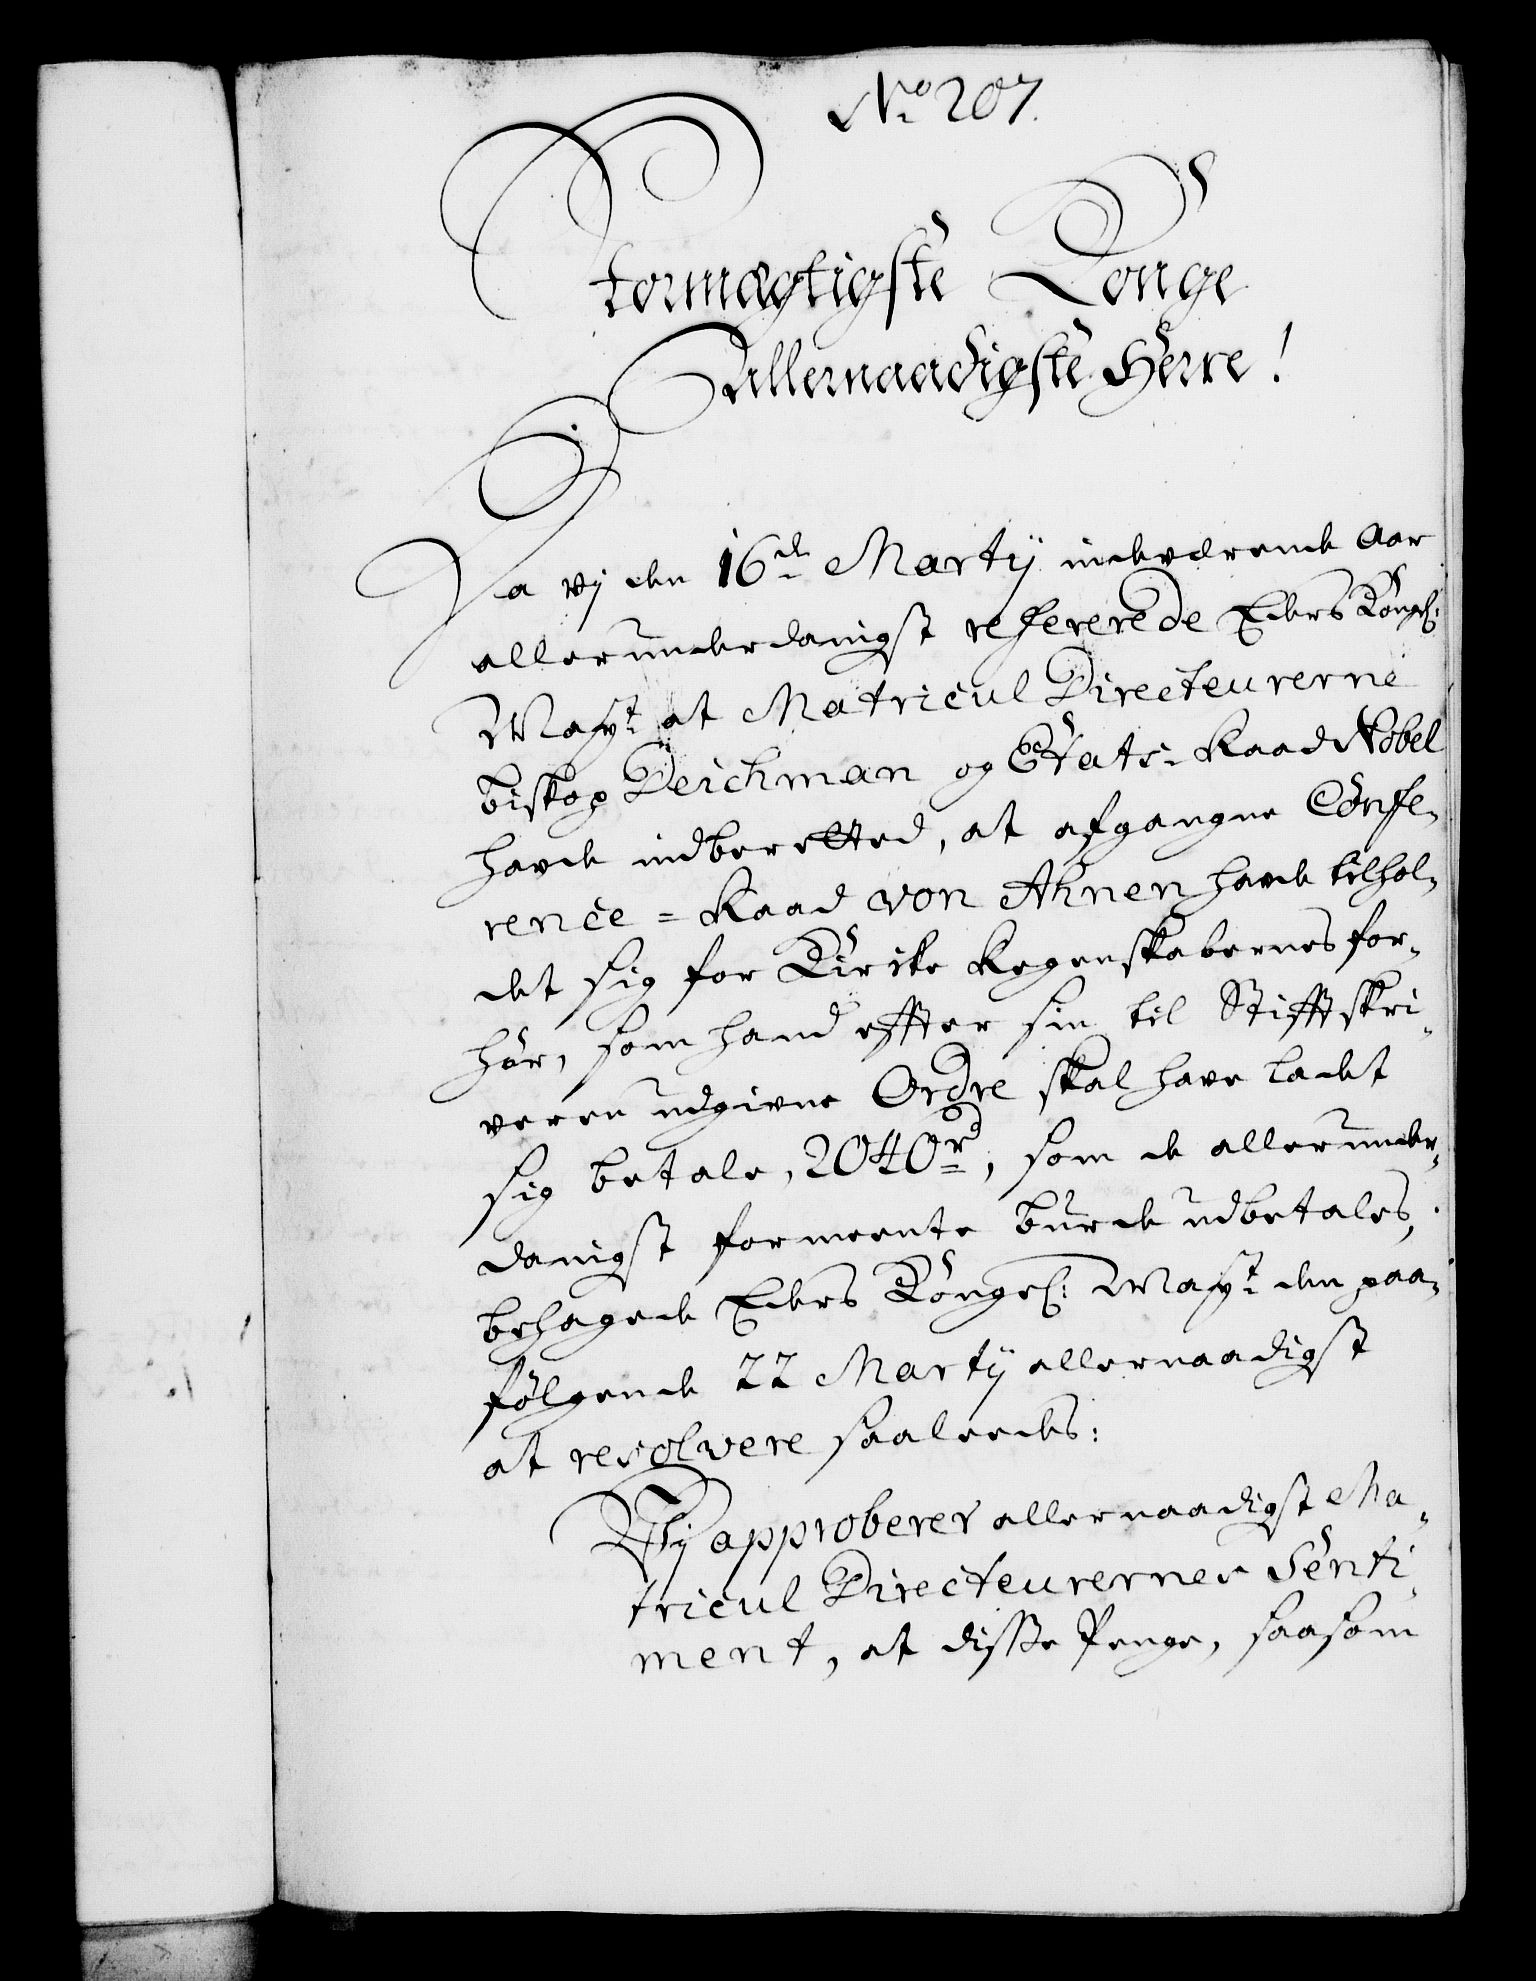 No 207.
Stormægtigste Konge
Allernaadigste Herre!
Da vj den 16de Martij indeværende Aar
allerunderdanigst refererede Eders Kongl:
Mayt at Matricul Directeurerne
biskop Deichman og Etats-Raad Nobel
havde indberetted, at afgangne Confe-
rence-Raad von Ahnen havde tilhol-
det sig for Kircke Regenskabernes for-
hör, som hand effter sin til Stifftskri-
veren udgivne Ordre skal have ladet
sig betale, 2040 rd, som de allerunder-
danigst formeente burde udbetales,
behagede Eders Kongel: Mayt den paa-
fölgende 22 Martij allernaadigst
at resolvere saaleedes:
Vj approberer allernaadigst Ma-
tricul Directeurernes Senti-
ment, at disse Penge, saasom